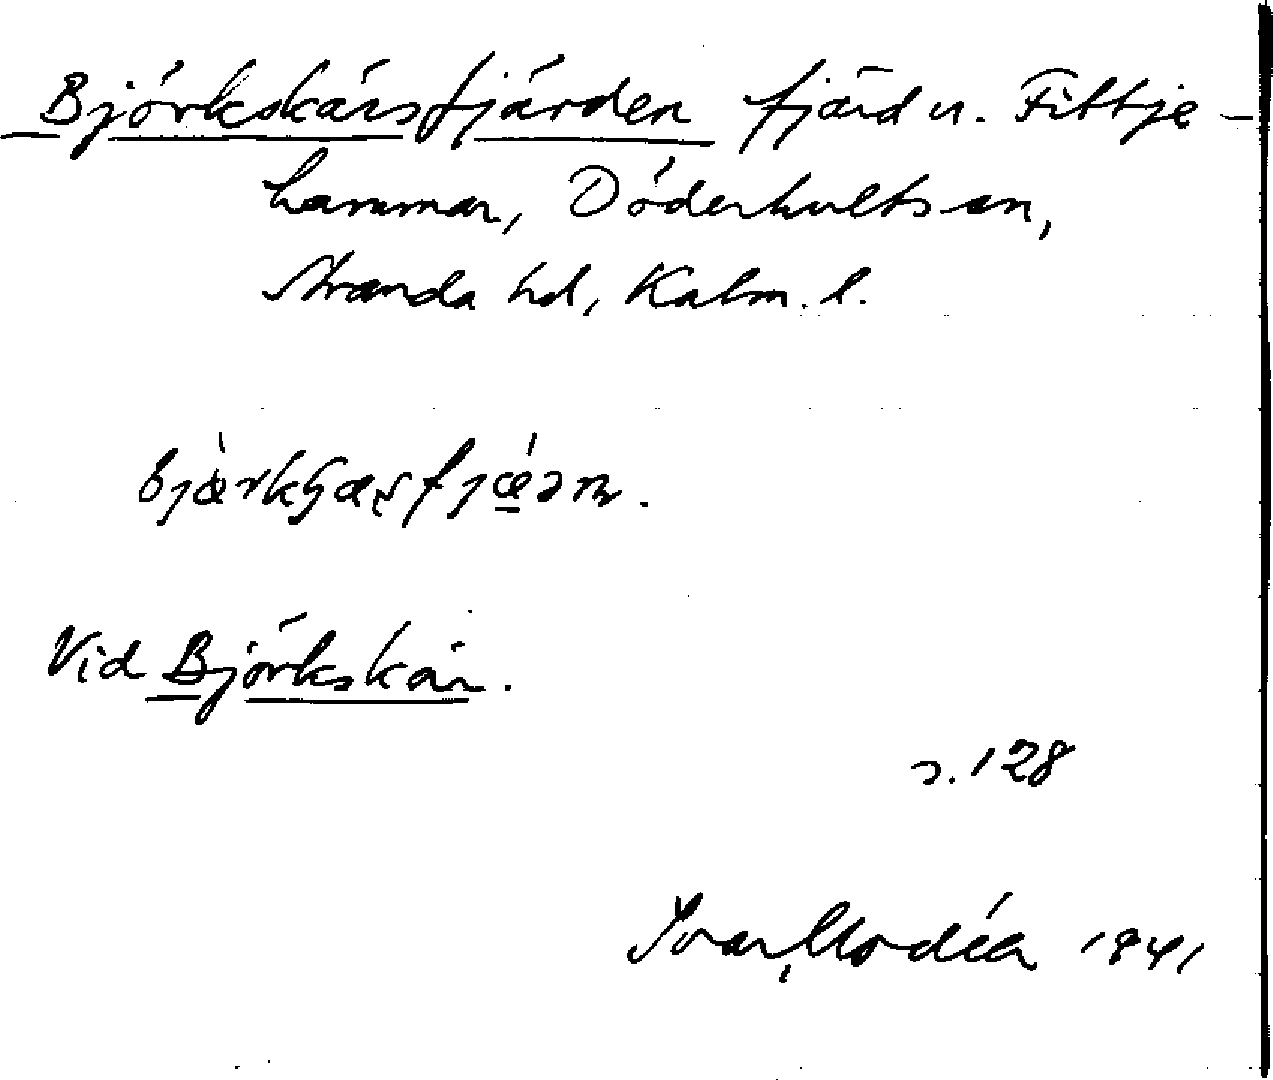 Björkskärsfjärden fjärd u. Fittje-
hammar, Döderhults sn,
Stranda hd, Kalm. l.
Vid Björkskär.
s. 128
Ivar Modéer 1941